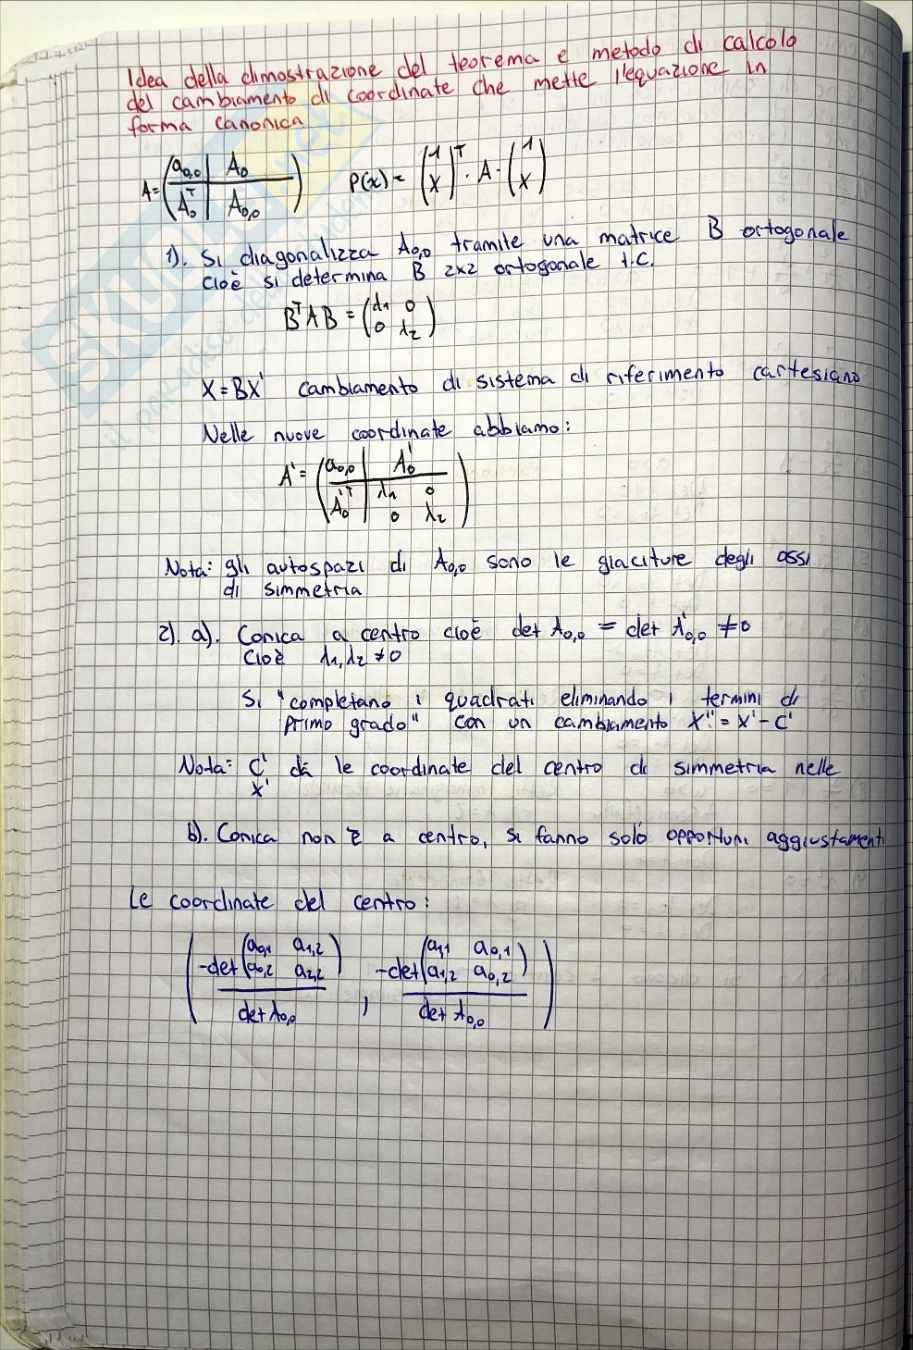 Idea della dimostrazione del teorema e metodo di calcolo
del cambiamento di coordinate che mette l'equazione in
forma canonica
A = (a0,0 | A0
A0^T | A0,0) P(x) = (1 X)^T · A · (1 X)
1). Si diagonalizza A0,0 tramite una matrice B ortogonale
cioè si determina B 2x2 ortogonale t.c.
B^T A B = (λ1 0
0 λ2)
X = BX' cambiamento di sistema di riferimento cartesiano
Nelle nuove coordinate abbiamo:
A' = (a0,0 | A'0
A'0^T | λ1 0
0 λ2)
Nota: gli autospazi di A0,0 sono le giaciture degli assi
di simmetria
2). a). Conica a centro cioè det A0,0 = det A'0,0 ≠ 0
cioè λ1, λ2 ≠ 0
Si "completano i quadrati eliminando i termini di
primo grado" con un cambiamento X'' = X' - C'
Nota: C' dà le coordinate del centro di simmetria nelle
X'
b). Conica non è a centro, si fanno solo opportuni aggiustamenti
Le coordinate del centro:
(-det(a0,1 a1,2
a0,2 a2,2) / det A0,0 , -det(a1,1 a0,1
a1,2 a0,2) / det A0,0)
SKUOLA.net
il paradiso dello studente